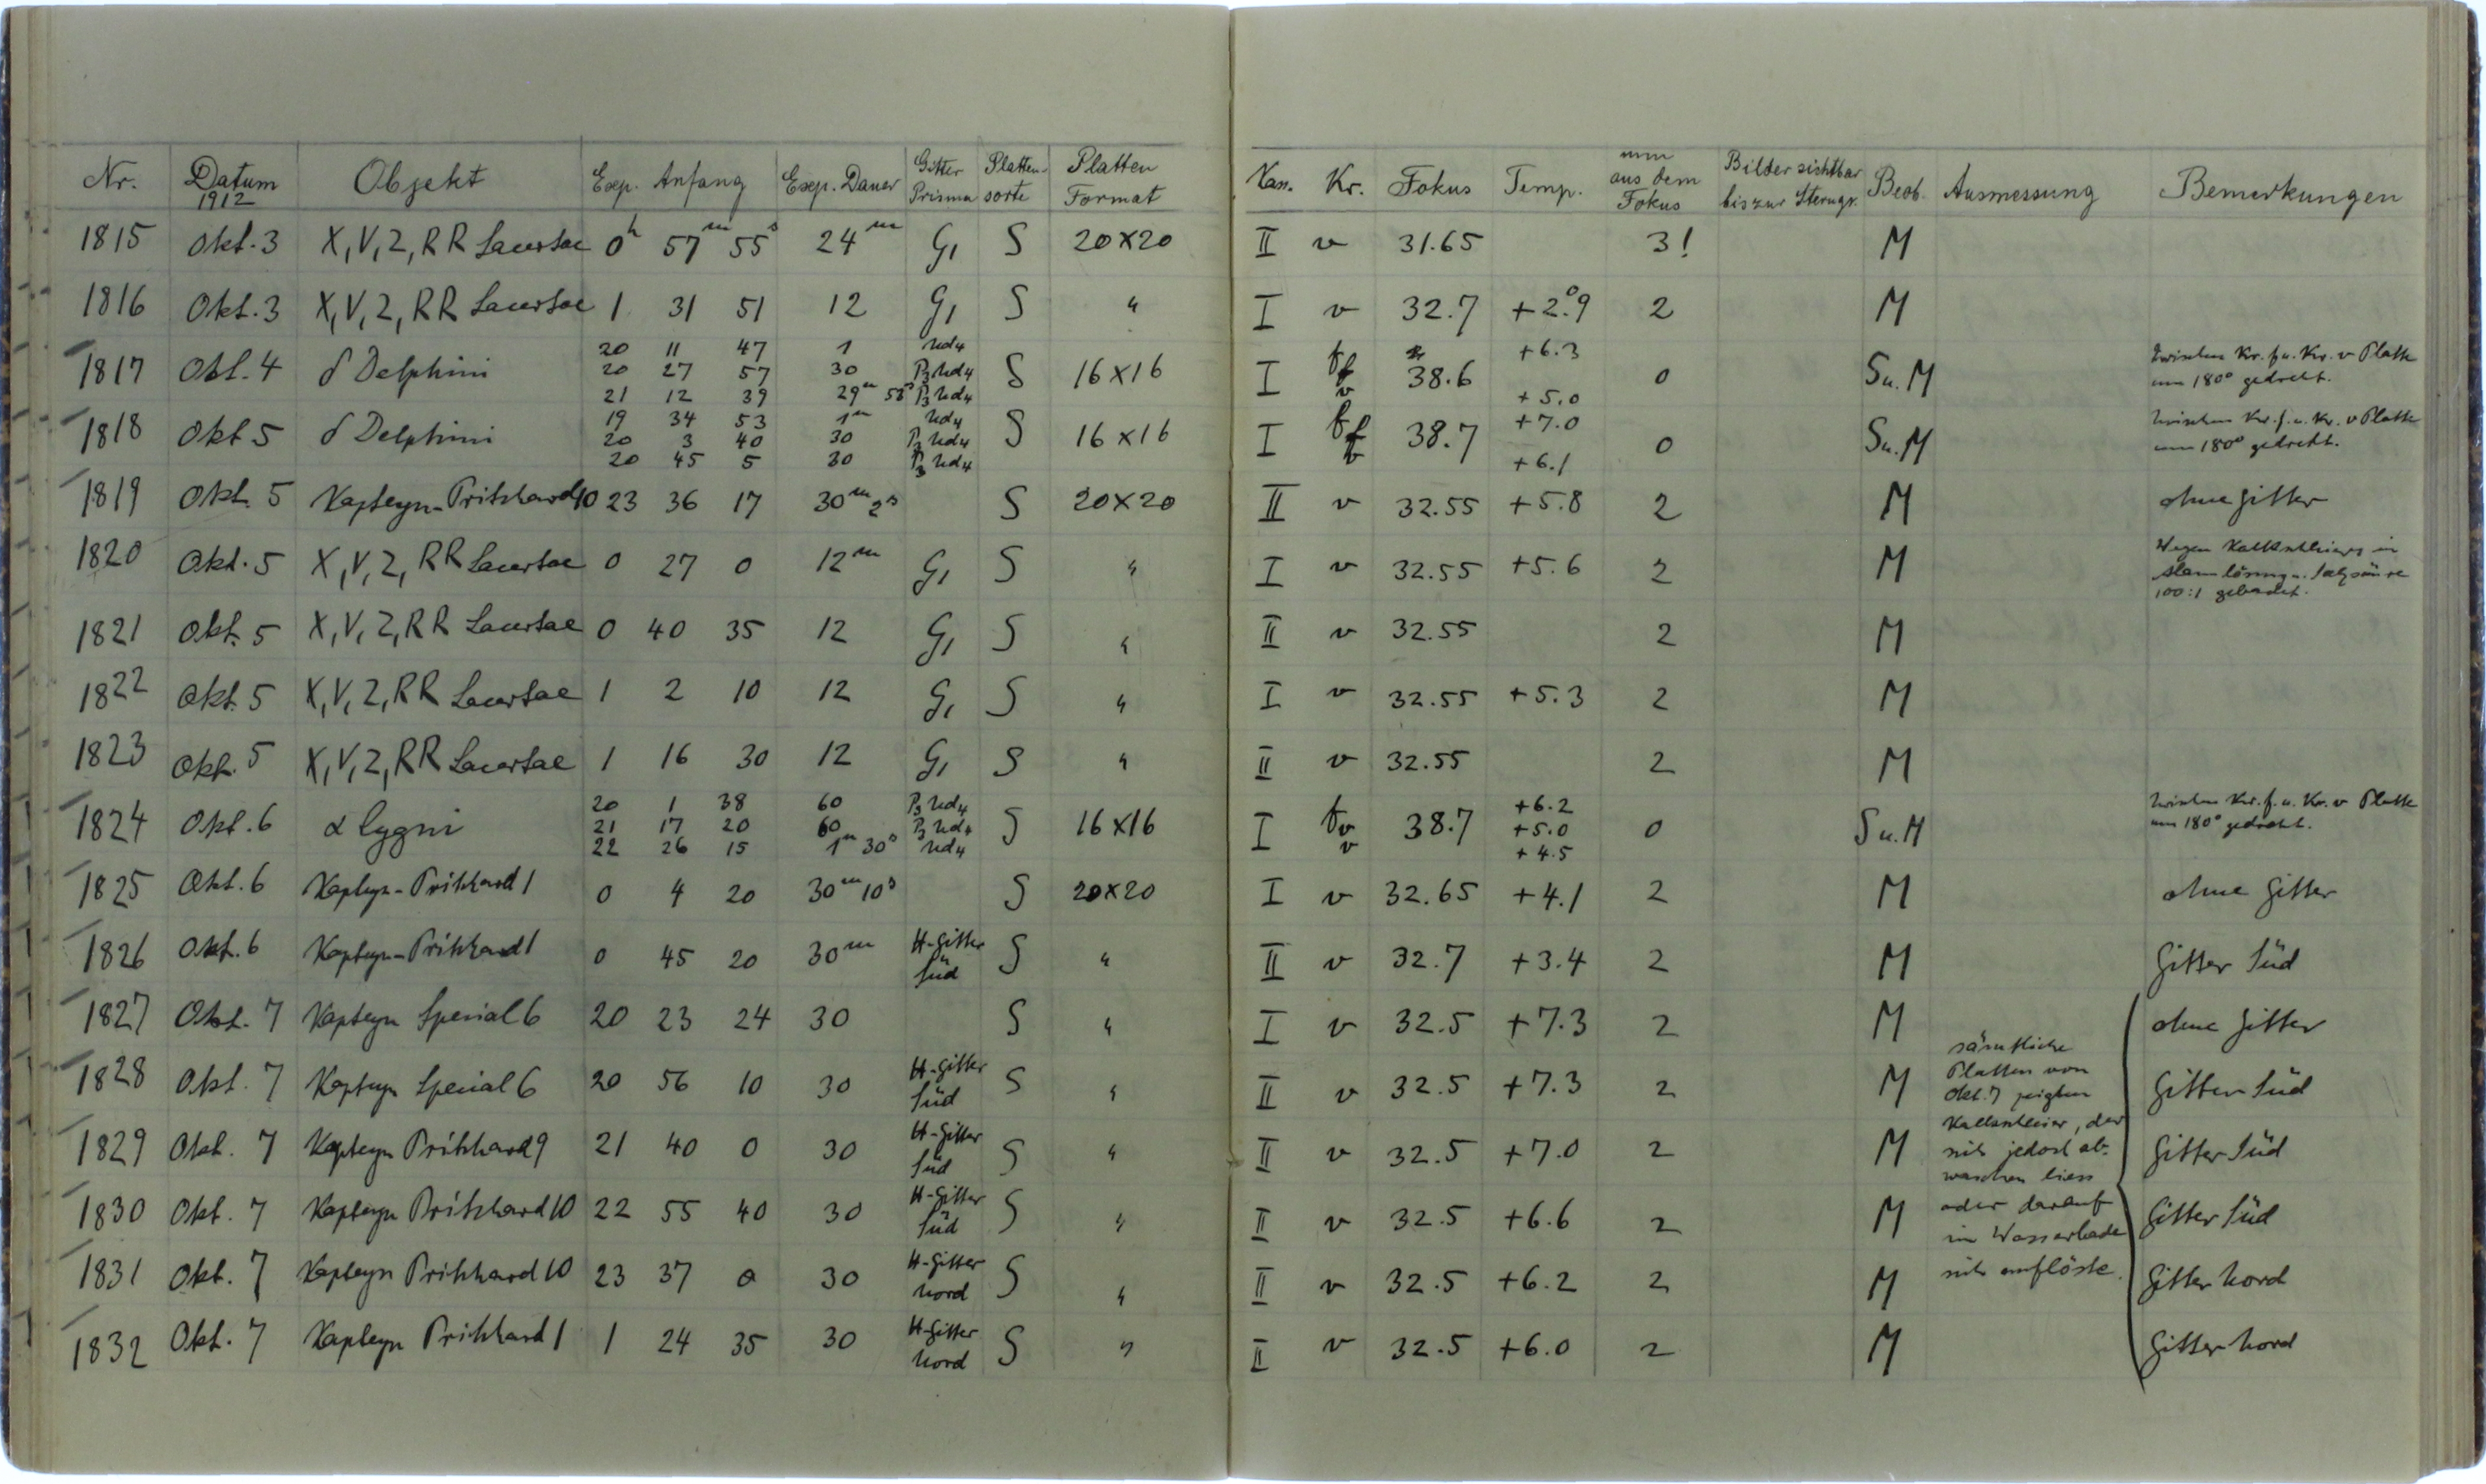 Nr. Datum 1912 Objekt Exp. Anfang Exp. Dauer Gitter Prisma Platten-sorte Platten Format Kas. Kr. Fokus Temp. mm aus dem Fokus Bilder sichtbar bis zur Sterngr. Beob. Ausmessung Bemerkungen
1815 Okt. 3 X, V, Z, RR Lacertae 0h 57m 55s 24m G1 S 20×20 II v 31.65 3! M
1816 Okt. 3 X, V, Z, RR Lacertae 1 31 51 12 G1 S " I v 32.7 +2.°9 2 M
20 11 47 1 Ud4 +6.3
1817 Okt. 4 δ Delphini 20 27 57 30 P3 Ud4 S 16×16 I f f v 38.6 0 S u. M Zwischen Kr. f u. Kr. v Platte um 180° gedreht.
21 12 39 29m 58s P3 Ud4 +5.0
19 34 53 1m Ud4 +7.0
1818 Okt 5 δ Delphini 20 3 40 30 P3 Ud4 S 16×16 I f f v 38.7 0 S u. M Zwischen Kr. f. u. Kr. v Platte um 180° gedreht.
20 45 5 30 P3 Ud4 +6.1
1819 Okt. 5 Kapteyn-Pritchard 10 23 36 17 30m 2s S 20×20 II v 32.55 +5.8 2 M ohne Gitter
1820 Okt. 5 X, V, Z, RR Lacertae 0 27 0 12m G1 S " I v 32.55 +5.6 2 M Wegen Kalkschleiers in Alaunlösung u. Salzsäure 100:1 gebadet.
1821 Okt. 5 X, V, Z, RR Lacertae 0 40 35 12 G1 S " II v 32.55 2 M
1822 Okt. 5 X, V, Z, RR Lacertae 1 2 10 12 G1 S " I v 32.55 +5.3 2 M
1823 Okt. 5 X, V, Z, RR Lacertae 1 16 30 12 G1 S " II v 32.55 2 M
20 1 38 60 P3 Ud4 +6.2
1824 Okt. 6 α Cygni 21 17 20 60 P3 Ud4 S 16×16 I f v v 38.7 +5.0 0 S u. M Zwischen Kr. f. u. Kr. v Platte um 180° gedreht.
22 26 15 1m 30s Ud4 +4.5
1825 Okt. 6 Kapteyn-Pritchard 1 0 4 20 30m 10s S 20×20 I v 32.65 +4.1 2 M ohne Gitter
1826 Okt. 6 Kapteyn-Pritchard 1 0 45 20 30m H-Gitter Süd S " II v 32.7 +3.4 2 M Gitter Süd
1827 Okt. 7 Kapteyn Spezial 6 20 23 24 30 S " I v 32.5 +7.3 2 M ohne Gitter
1828 Okt. 7 Kapteyn Spezial 6 20 56 10 30 H-Gitter Süd S " II v 32.5 +7.3 2 M Gitter Süd
1829 Okt. 7 Kapteyn Pritchard 9 21 40 0 30 H-Gitter Süd S " II v 32.5 +7.0 2 M Gitter Süd
1830 Okt. 7 Kapteyn Pritchard 10 22 55 40 30 H-Gitter Süd S " II v 32.5 +6.6 2 M Gitter Süd
1831 Okt. 7 Kapteyn Pritchard 10 23 37 0 30 H-Gitter Nord S " II v 32.5 +6.2 2 M Gitter Nord
1832 Okt. 7 Kapteyn Pritchard 1 1 24 35 30 H-Gitter Nord S " II v 32.5 +6.0 2 M Gitter Nord
sämtliche
Platten von
Okt. 7 zeigten
Kalkschleier, der
sich jedoch ab-
waschen liess
oder darauf
im Wasserbade
sich auflöste.